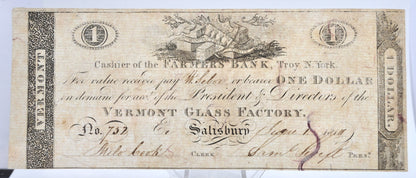 1 1
Cashier of the FARMERS' BANK, Troy, N. York.
For value receiv'd pay or bearer ONE DOLLAR
on demand for acct. of the President & Directors of the
VERMONT GLASS FACTORY.
No. 752 Salisbury
Clerk Prest.
VERMONT
1 DOLLAR.